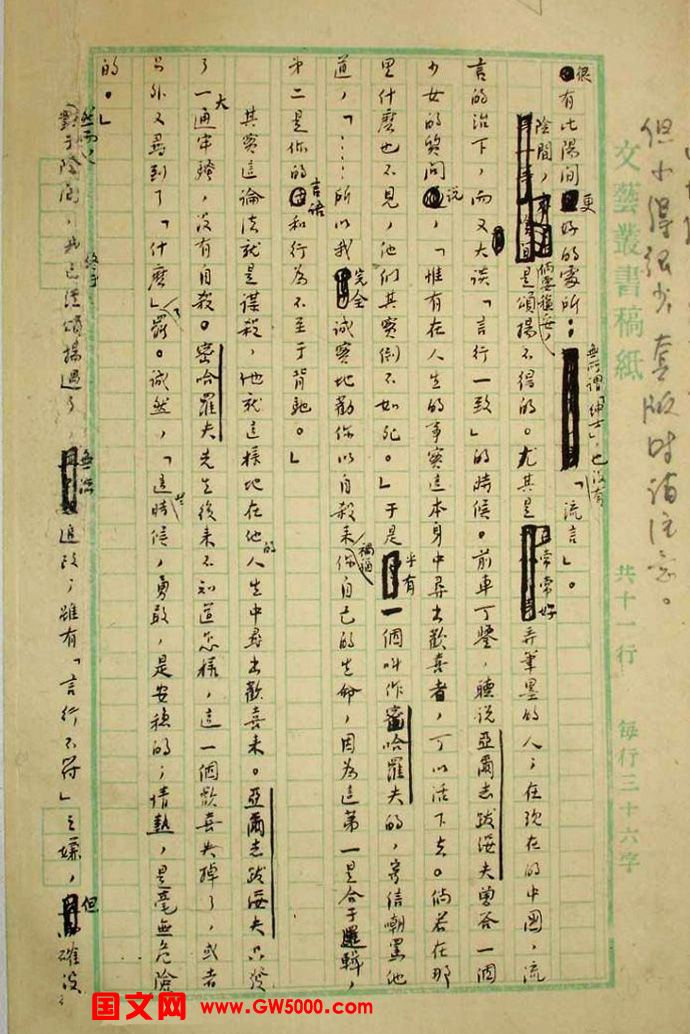 套版時請注意。
文藝叢書稿紙 共十一行 每行三十六字
很有比陽間更好的處所：無所謂「紳士」，也沒有「流言」。
陰間，倘要穩妥，是頌揚不得的。尤其是常常好弄筆墨的人，在現在的中國，流
言的治下，而又大談「言行一致」的時候。前車可鑒，聽說亞爾志跋綏夫曾答一個
少女的質問說，「惟有在人生的事實這本身中尋出歡喜者，可以活下去。倘若在那
里什麼也不見，他們其實倒不如死。」于是乎有一個叫作密哈羅夫的，寄信嘲罵他
道，「……所以我完全誠實地勸你以自殺來禍福你自己的生命，因為這第一是合于邏輯，
第二是你的言語和行為不至于背馳。」
其實這論法就是謀殺，他就這樣地在他的人生中尋出歡喜來。亞爾志跋綏夫只發
了一大通牢騷，沒有自殺。密哈羅夫先生後來不知道怎樣，這一個歡喜失掉了，或者
另外又尋到了「什麼」了罷。誠然，「這些時候，勇敢，是安穩的；情熱，是毫無危險
的。」
然而，對于陰間，我終于已經頌揚過了，無從追改；雖有「言行不符」之嫌，但確沒
国文网 www.GW5000.com